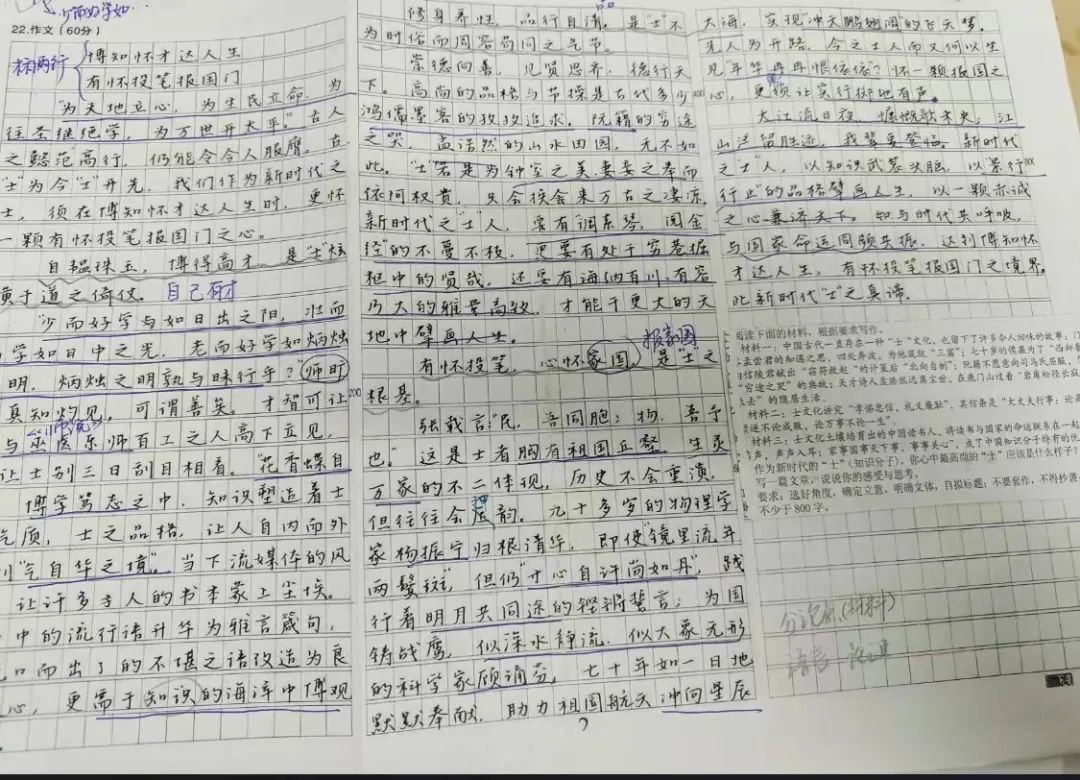 少而好学如…
22.作文（60分）
标两行
博知怀才达人生
有怀投笔报国门
“为天地立心，为生民立命，为
往圣继绝学，为万世开太平。”古人
之懿范高行，仍能令今人服膺。古
“士”为今“士”开先，我们作为新时代之
士，须在博知怀才达人生时，更怀
一颗有怀投笔报国门之心。
自韫珠玉，博得高才，是“士”炫
黄于道之倚仗。 自己有才
“少而好学与如日出之阳，壮而
学如日中之光，老而好学如炳烛
明，炳烛之明孰与昧行乎？”师旷
真知灼见，可谓善矣。才智可让
《师说》
与巫医乐师百工之人高下立见，
让士别三日刮目相看。“花香蝶自
博学笃志之中，知识塑造着士
气质，士之品格，让人自内而外
“气自华之境”。当下流媒体的风
让许多士人的书本蒙上尘埃。
中的流行语升华为雅言箴句，
口而出了的不堪之语改造为良
心，更需于知识的海洋中博观
品
修身养性，品行自清，是“士”不
为时俗而周容苟同之气节。
崇德向善，见贤思齐，德行天
下。高尚的品格与节操是古代多少
400
鸿儒墨客的孜孜追求。阮籍的穷途
之哭，孟浩然的山水田园，无不如
此。“士”若是为钟室之美，妻妾之奉而
依阿权贵，只会换会来万古之凄凉。
新时代之“士”人，要有“调素琴，阅金
经”的不蔓不枝，还要有处于穷巷掘
枢中的贤哉，还要有海纳百川，有容
乃大的雅量高致，才能于更大的天
地中擘画人生。
报家国
有怀投笔，心怀家国，是“士”之
200
根基。
张载言“民，吾同胞；物，吾予
也。”这是士者胸有祖国丘壑，生灵
万家的不二体现。历史不会重演，
但往往会压韵。九十多岁的物理学
押
家杨振宁归根清华，即使“镜里流年
两鬓斑”，但仍“寸心自许尚如丹”，践
行着明月共同途的铿锵誓言；为国
铸战鹰，似深水静流，似大象无形
的科学家顾诵芬，七十年如一日地
默默奉献，助力祖国航天冲向星辰
大海，实现“冲天鹏翅阔”的飞天梦。
先人为开路，今之士人而又何以坐
见“年华冉冉恨依依”？怀一颗报国之
心，更须让实行掷地有声。
大江流日夜，慷慨歌未央；江
山汪留胜迹，我辈要登临。新时代
之“士”人，以知识武装头脑，以“景行
800
行止”的品格擘画人生，以一颗赤诚
之心兼济天下。如与时代共呼吸，
与国家命运同频共振，达到博知怀
才达人生，有怀投笔报国门之境界。
此新时代“士”之真谛。
阅读下面的材料，根据要求写作。
材料一：中国古代一直存在一种“士”文化，也留下了许多令人回味的故事：
孟尝君的知遇之恩，四处奔波，为他凿就“三窟”；七十岁的侯嬴为了
信陵君献出“窃符救赵”的计策后“北向自刎”；阮籍不愿意向司马氏屈服，
“穷途之哭”的典故；天才诗人孟浩然远离尘世，在鹿门山过着“岩扉松径长寂
去”的隐居生活。
材料二：士文化讲究“孝悌忠信，礼义廉耻”，其信条是“大丈夫行事：论
逆不论成败，论万事不论一生”。
材料三：士文化土壤培育出的中国读书人，将读书与国家的命运联系在一起
声，声声入耳；家事国事天下事，事事关心”，成了中国知识分子特有的
作为新时代的“士”（知识分子），你心中最高尚的“士”应该是什么样子？
写一篇文章，说说你的感受与思考。
要求：选好角度，确定立意，明确文体，自拟标题；不要套作，不得抄袭
不少于800字。
分论点（材料）
语言